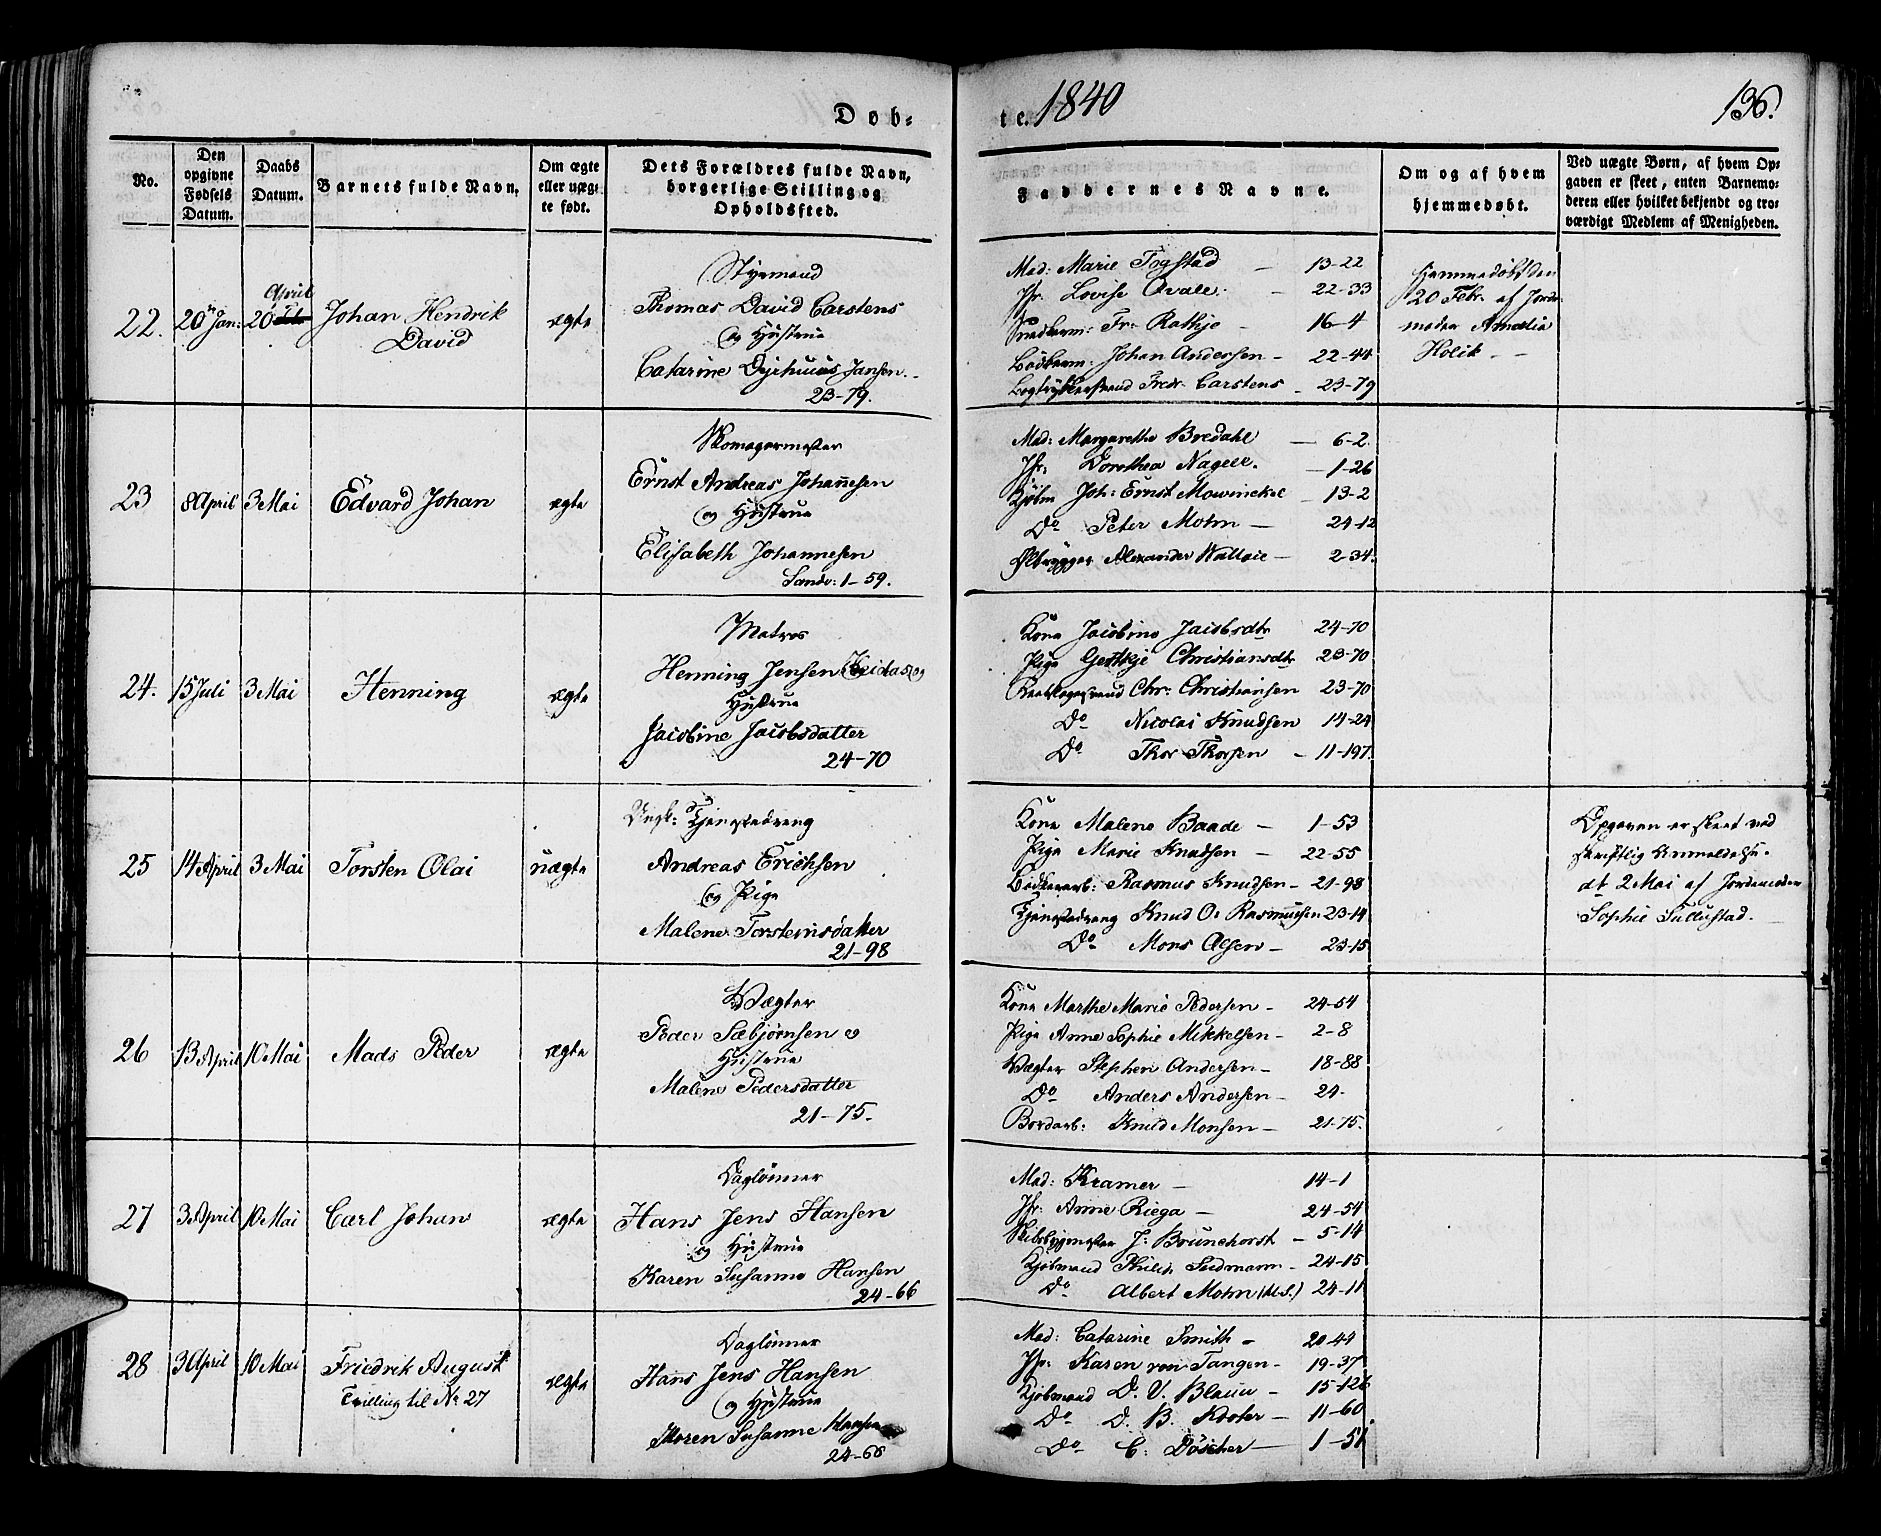 Døb-
te. 1840
136.
No.
Den opgivne Fødsels Datum.
Daabs Datum.
Barnets fulde Navn.
Om ægte eller uægte født.
Dets Forældres fulde Navn, borgerlige Stilling og Opholdssted.
Faddernes Navne.
Om og af hvem hjemmedøbt.
Ved uægte Børn, af hvem Opgaven er skeet, enten Barnemoderen eller hvilket bekjendt og troværdigt Medlem af Menigheden.
22. 20 Jan: 20 April
Johan Hendrik
David
ægte
Styrmand
Thomas David Carstens
og Hustrue
Catarine Jansen.
23-79.
Mad: Marie Fogstad – 13-22
Jfr. Lovise Qvale. – 22-33
Snedkerm: Fr: Rathje – 16-4
Bødkerm: Johan Andersen – 22-44
Bogtrykkersvend Fredr. Carstens – 23-79
Hjemmedøbt den
20 Febr. af Jorde-
moder Amalia
Holik –
23 8 April 3 Mai
Edvard Johan
ægte
Skomagermester
Ernst Andreas Johannesen
og Hustrue
Elisabeth Johannesen
Sandv: 1-59.
Mad: Margarethe Bredahl – 6-2
Jfr. Dorothea Nagell. – 1-26
Kjøbm Joh: Ernst Mowinckel – 13-2
Do Peter Mohn – 24-12
Ølbrygger Alexander Wallace – 2-34.
24. 15 Juli 3 Mai
Henning
ægte
Matros
Henning Jensen og
Hustrue
Jacobine Jacobsdatter
24-70
Kone Jacobine Jacobsdtr 24-70
Pige Gertkje Christiansdtr 23-70
Chr: Christiansen 23-70
Do Nicolai Knudsen 14-24
Do Thor Thorsen – 11-197.
25 14 April 3 Mai
Torsten Olai
uægte
Ungk: Tjenestedreng
Andreas Erichsen
og Pige
Malene Torsteinsdatter
21-98
Kone Malene Baade – 1-53
Pige Marie Knudsen – 22-55
Bødkerarb: Rasmus Knudsen – 21-98
Tjenestedreng Knud O. Rasmussen 23-14
Do Mons Olsen – 23-15
Opgaven er skeet ved
skriftlig Anmeldelse
dt 2 Mai af Jordemoder
Sophie Tullustad.
26 13 April 10 Mai
Mads Peder
ægte
Vægter
Peder Sæbjørnsen o
Hustrue
Malene Pedersdatter
21-75.
Kone Marthe Marie Pedersen – 24-54
Pige Anne Sophie Mikkelsen – 2-8
Vægter Stephen Andersen – 18-88
Do Anders Andersen – 24.
Bordarb: Knud Monsen – 21-75.
27 3 April 10 Mai
Carl Johan
ægte
Daglønner
Hans Jens Hansen
og Hustrue
Karen Susanne Hansen
24-66
Mad: Kramer – 14-1
Jfr: Anne Riega – 24-54
Skibsbygmester J: Brunchorst – 5-14
Kjøbmand Philip Seidmann – 24-15
Do Albert Mohn (M.S.) 24-11
28 3 April 10 Mai
Friedrik August
Tvilling til No 27
ægte
Daglønner
Hans Jens Hansen
og Hustrue
Karen Susanne Hansen
24-66
Mad: Catarine Smith – 20-49
Jfr: Karen von Tangen – 19-37
Kjøbmand D. V. Blauw – 15-126
Do D. B. Kooter – 11-60
Do C. Döscher – 1-51